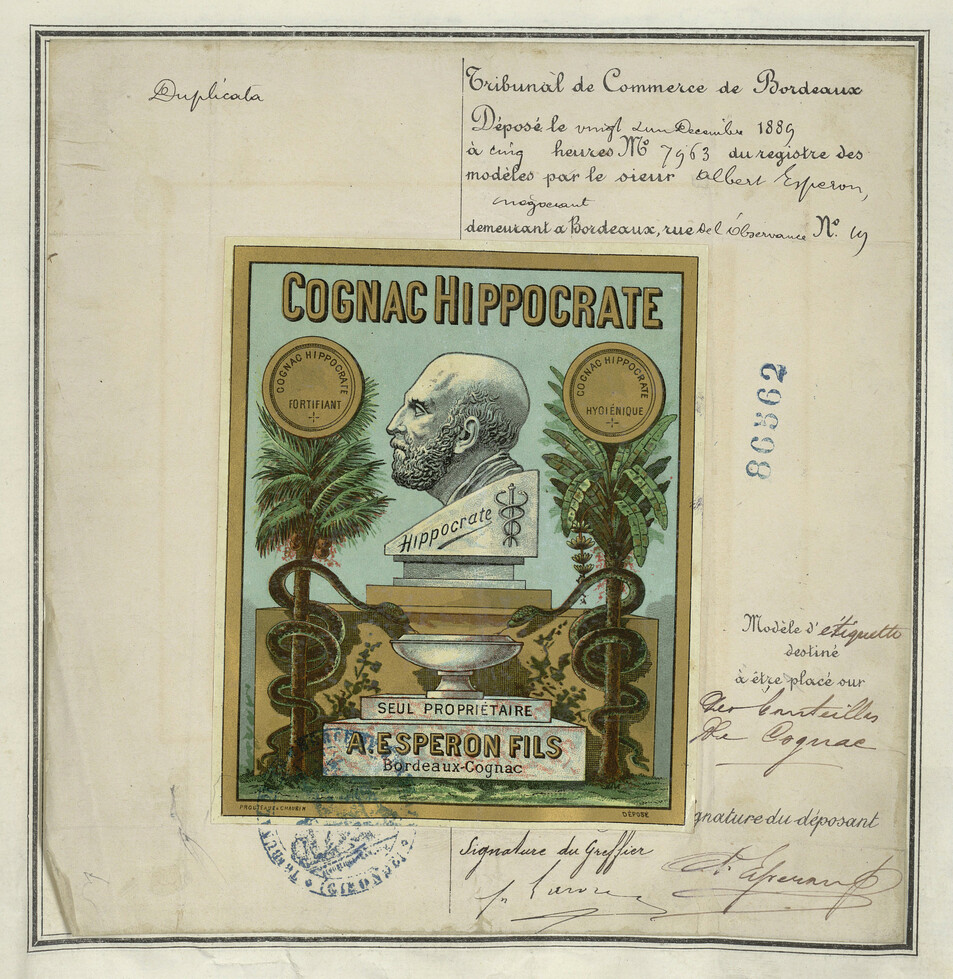 Duplicata
Tribunal de Commerce de Bordeaux
Déposé le vingt un Decembre 1889
à cinq heures No 7963 du registre des
modèles par le sieur Albert Esperon,
negociant
demeurant a Bordeaux, rue de l'Observance No. 19
COGNAC HIPPOCRATE
COGNAC HIPPOCRATE
FORTIFIANT
COGNAC HIPPOCRATE
HYGIÉNIQUE
Hippocrate
SEUL PROPRIÉTAIRE
A. ESPERON FILS
Bordeaux-Cognac
FROGTEAU & CHAURIN
DÉPOSÉ
80562
Modèle d'étiquette
destiné
à être placé sur
des bouteilles
de Cognac
gnature du déposant
Signature du Greffier
A. Esperon